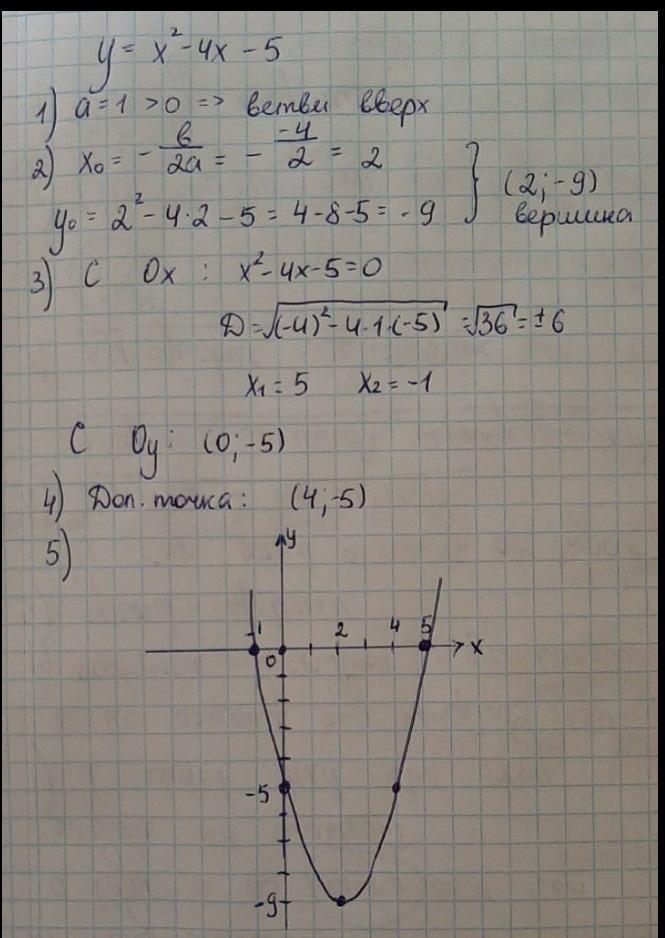 y = x² - 4x - 5
1) a = 1 > 0 => ветви вверх
2) x₀ = - в/2a = - -4/2 = 2
y₀ = 2² - 4·2 - 5 = 4 - 8 - 5 = -9 } (2; -9) вершина
3) С Ox : x² - 4x - 5 = 0
D = √((-4)² - 4·1·(-5)) = √36 = ± 6
x₁ = 5 x₂ = -1
С Oy: (0; -5)
4) Доп. точка: (4; -5)
5)
y
-1 2 4 5
0 x
-5
-9